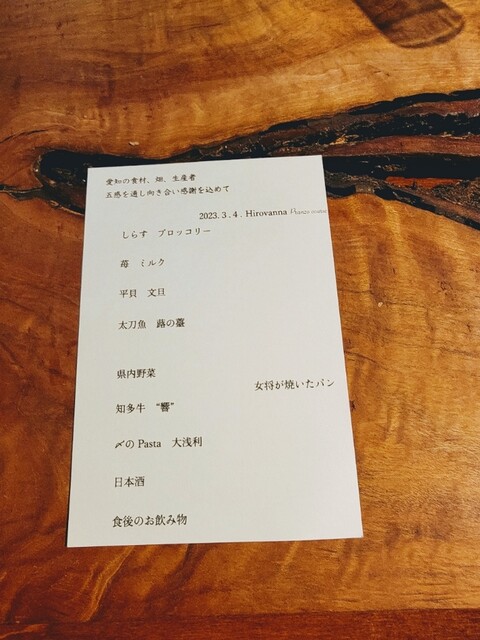 愛知の食材、畑、生産者
五感を通し向き合い感謝を込めて
2023.3.4. Hirovanna
しらす ブロッコリー
苺 ミルク
平貝 文旦
太刀魚 蕗の薹
県内野菜
女将が焼いたパン
知多牛 “響”
〆のPasta 大浅利
日本酒
食後のお飲み物